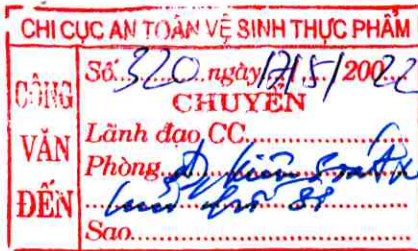 CHI CỤC AN TOÀN VỆ SINH THỰC PHẨM
CÔNG VĂN ĐẾN
Số...320...ngày 17/5/20022
CHUYỂN
Lãnh đạo CC
Phòng
Sao